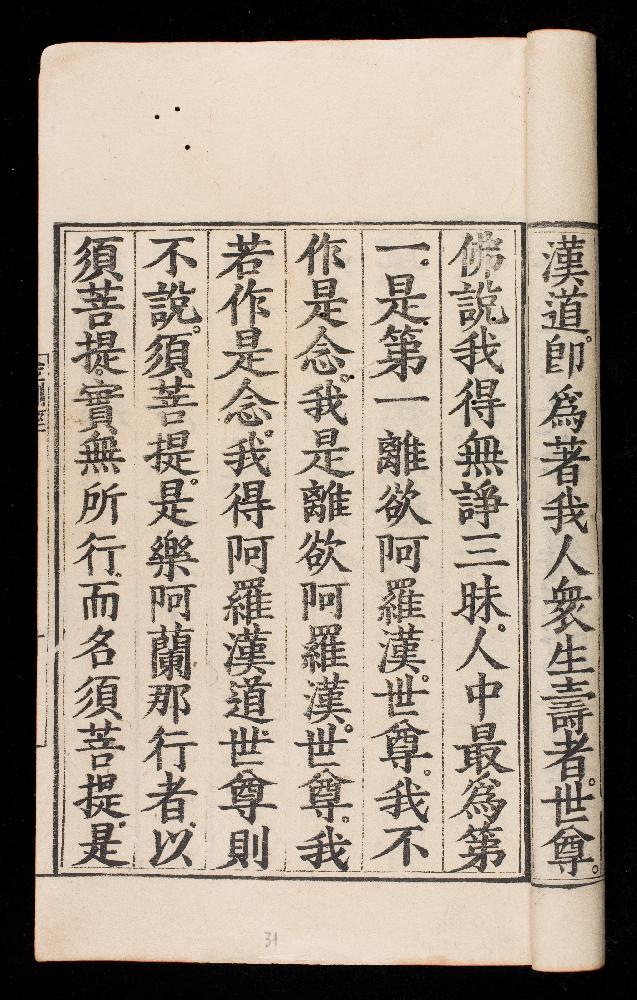 漢道。即爲著我人衆生壽者。世尊。
佛說我得無諍三昧。人中最爲第
一。是第一離欲阿羅漢。世尊。我不
作是念。我是離欲阿羅漢。世尊。我
若作是念。我得阿羅漢道。世尊則
不說。須菩提。是樂阿蘭那行者。以
須菩提。實無所行。而名須菩提。是
31